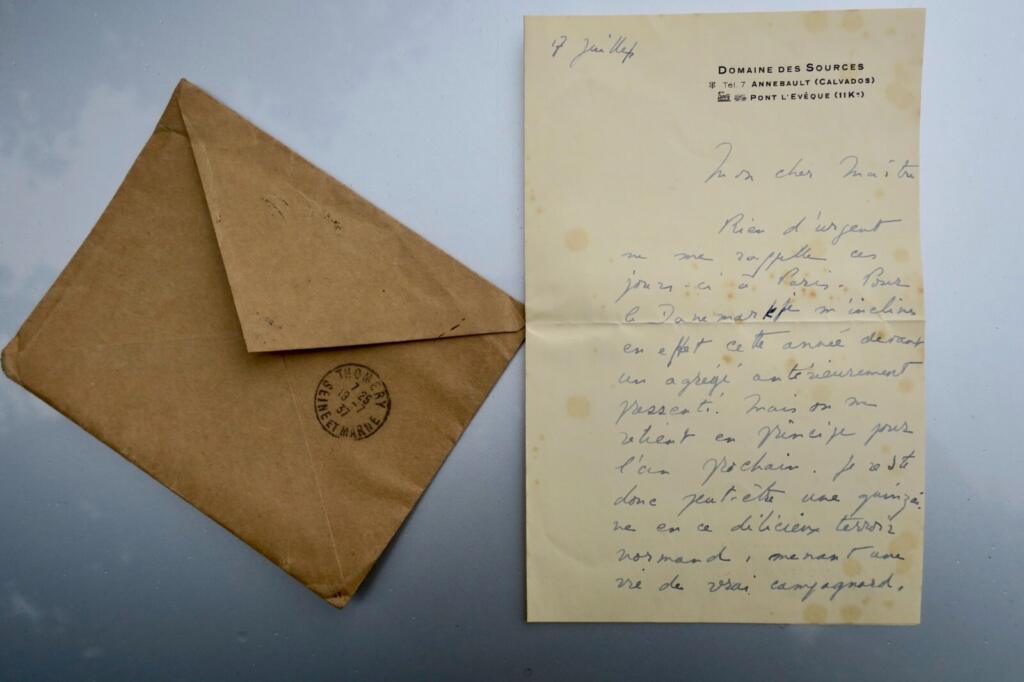 THOMERY
7 25
19 -7
37
SEINE ET MARNE
17 Juillet
DOMAINE DES SOURCES
Tel. 7 ANNEBAULT (CALVADOS)
PONT L'EVÊQUE (11Km)
Mon cher Maître
Rien d'urgent
ne me rappelle ces
jours-ci à Paris. Pour
le Danemark je m'incline
en effet cette année devant
un agrégé antérieurement
pressenti. Mais on me
retient en principe pour
l'an prochain. Je reste
donc peut-être une quinzai-
ne en ce délicieux terroir
normand, menant une
vie de vrai campagnard.